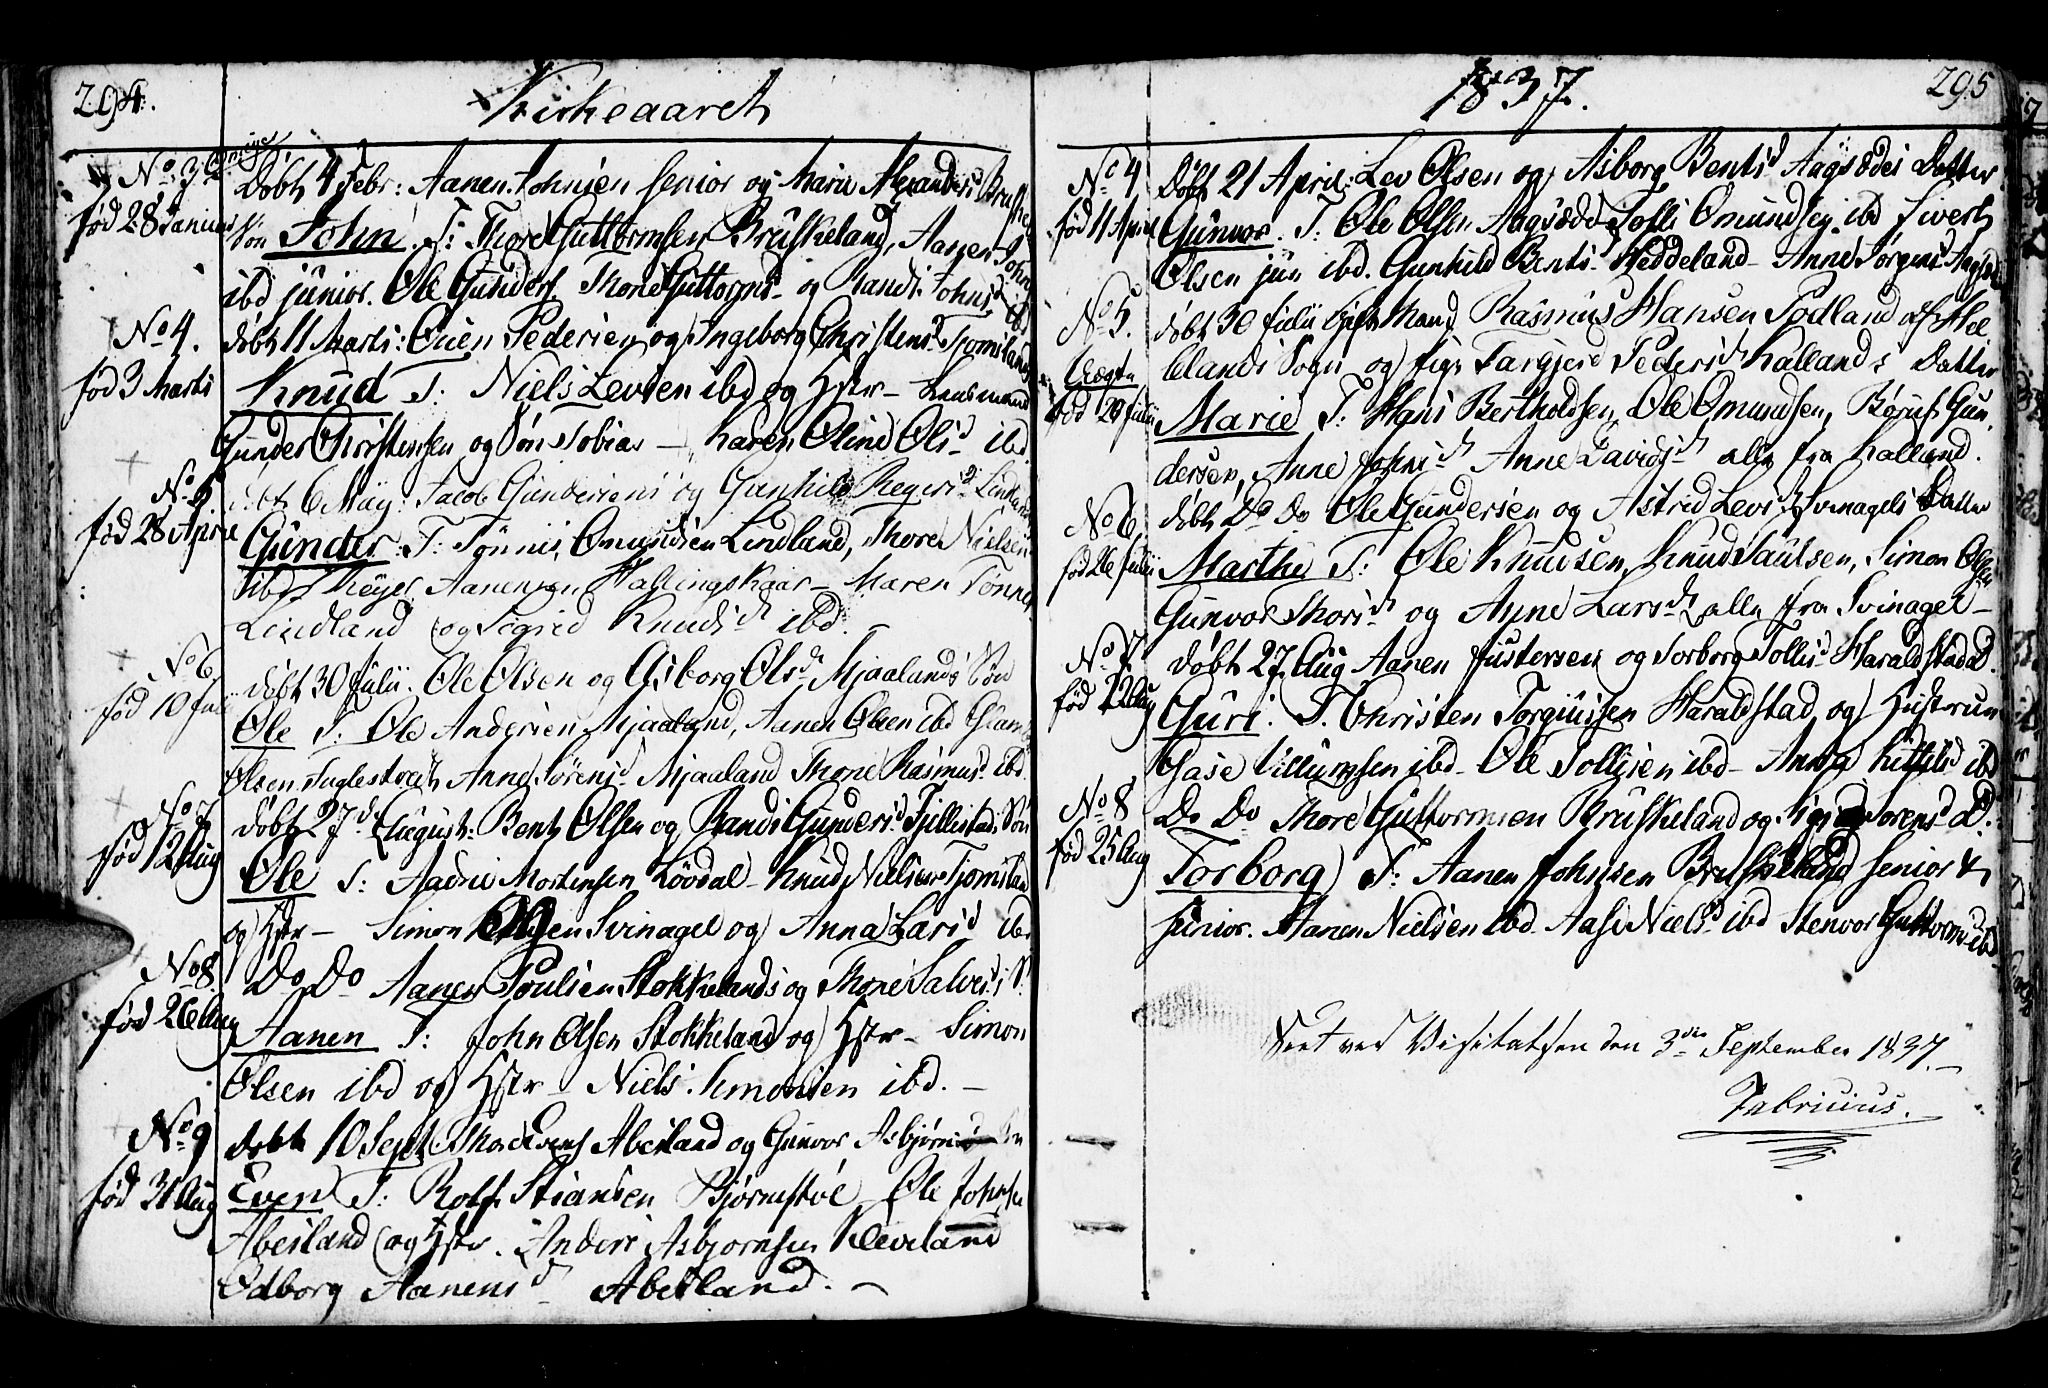 294.
Kirkeaaret
No. 3
født 28 Januar
Døbt 4 Febr: Aanen Johnsen senior og Marie Alexanders
Søn John. T: Thore Guttormsen Bruskeland, Aanen John
ibd junior. Ole Gunders. Thone Guttorms- og Randi Johnsd ibd
No 4.
fød 3 Marts
døbt 11 Marts: Ouen Pedersen og Ingeborg Christensd Tjomsland
Knud T: Niels Levsen ibd og Hstr - Lensmand
Gunder Christensen og Søn Tobias - Karen Oline Olsd ibd
No 5
fød 28 April
døbt 6 May: Jacob Gundersens og Gunhild Regersd Lindland
Gunder. T: Tønnis Omundsen Lindland, Thore Nielsen
ibd Reyer Aanensen Hallingskaar - Maren Tønnes
Lindland og Sigrid Knudsd ibd. -
No 6
fød 10 Juli
døbt 30 Julii. Ole Olsen og Asborg Olsd Mjaalands Søn
Ole T: Ole Andersen Mjaaland, Aanen Olsen ibd
Olsen Fuglestvedt Anne Sørensd Mjaaland Thone Rasmusd ibd
No 7
fød 12 Aug
døbt 27de August: Bent Olsen og Randi Gundersd Søn
Ole T: Mortensen Løvdal - Knud Nielsen Tjomsland
og Hstr - Simon Olsen Svinagel og Anna Larsd ibd
No 8.
fød 26 Aug
Do Do Aanen Poulsen Stokkelands og Thone Salvesd S.
Aanen T: John Olsen Stokkeland og Hstr - Simon
Olsen ibd og Hstr - Niels Simonsen ibd. -
No 9
fød 31 Aug
døbt 10 Sept: Evens Abeland og Gunvor Asbjørns
Even T: Rolf Stiansen Bjørnstøl Ole Johnsen
Abeland og Hstr. Anders Asbjørnsen Kleveland
Odborg Aanensd Abeland. -
1837.
295
No 4
fød 11 April
Døbt 21 April: Lev Olsen og Asborg Bentsd Aagsædes Datter
Gunvor. T: Ole Olsen Aagsædd Tolli Omundsen ibd Sivert
Olsen jun ibd. Gunhild Bentsd Heddeland - Anne Jørgensd Aagsæd
No 5.
Uægte
fød 20 Julii
døbt 30 Julii Gift Mand Rasmus Hansen Podland af Hel
lands Sogn og Pige Targjerd Pedersd Kallands Datter
Marie T: Hans Bertholdsen, Ole Omundsen, Børuf Gun,
dersen, Anne Johnsd Anne Davidsd alle fra Kalland.
No 6
fød 26 Julii
døbt Do Do Ole Gundersen og Astrid Levsd Svinagels Datter
Marthe T: Ole Knudsen, Knud Paulsen, Simon Olsen
Gunvor Thorsd og Anne Larsd alle fra Svinagel -
No 7.
fød 12 Aug
døbt 27 Aug Aanen Justersen og Torborg Tollisd Haraldstad D.
Guri. T. Christen Torgiussen Haraldstad og Hustrue
Gase Villumsen ibd - Ole Tollisen ibd - Anna Kittilsd ibd
No 8
fød 25 Aug
Do Do Thore Guttormsen Bruskeland og Sigrid Sørensd D:
Torborg T: Aanen Johnsen Bruskeland senior &
junior. Aanen Nielsen ibd. Aase Nielsd ibd Stenvor Guttormsd ibd
Seet ved Visitatsen den 3die September 1837. -
Fabricius.